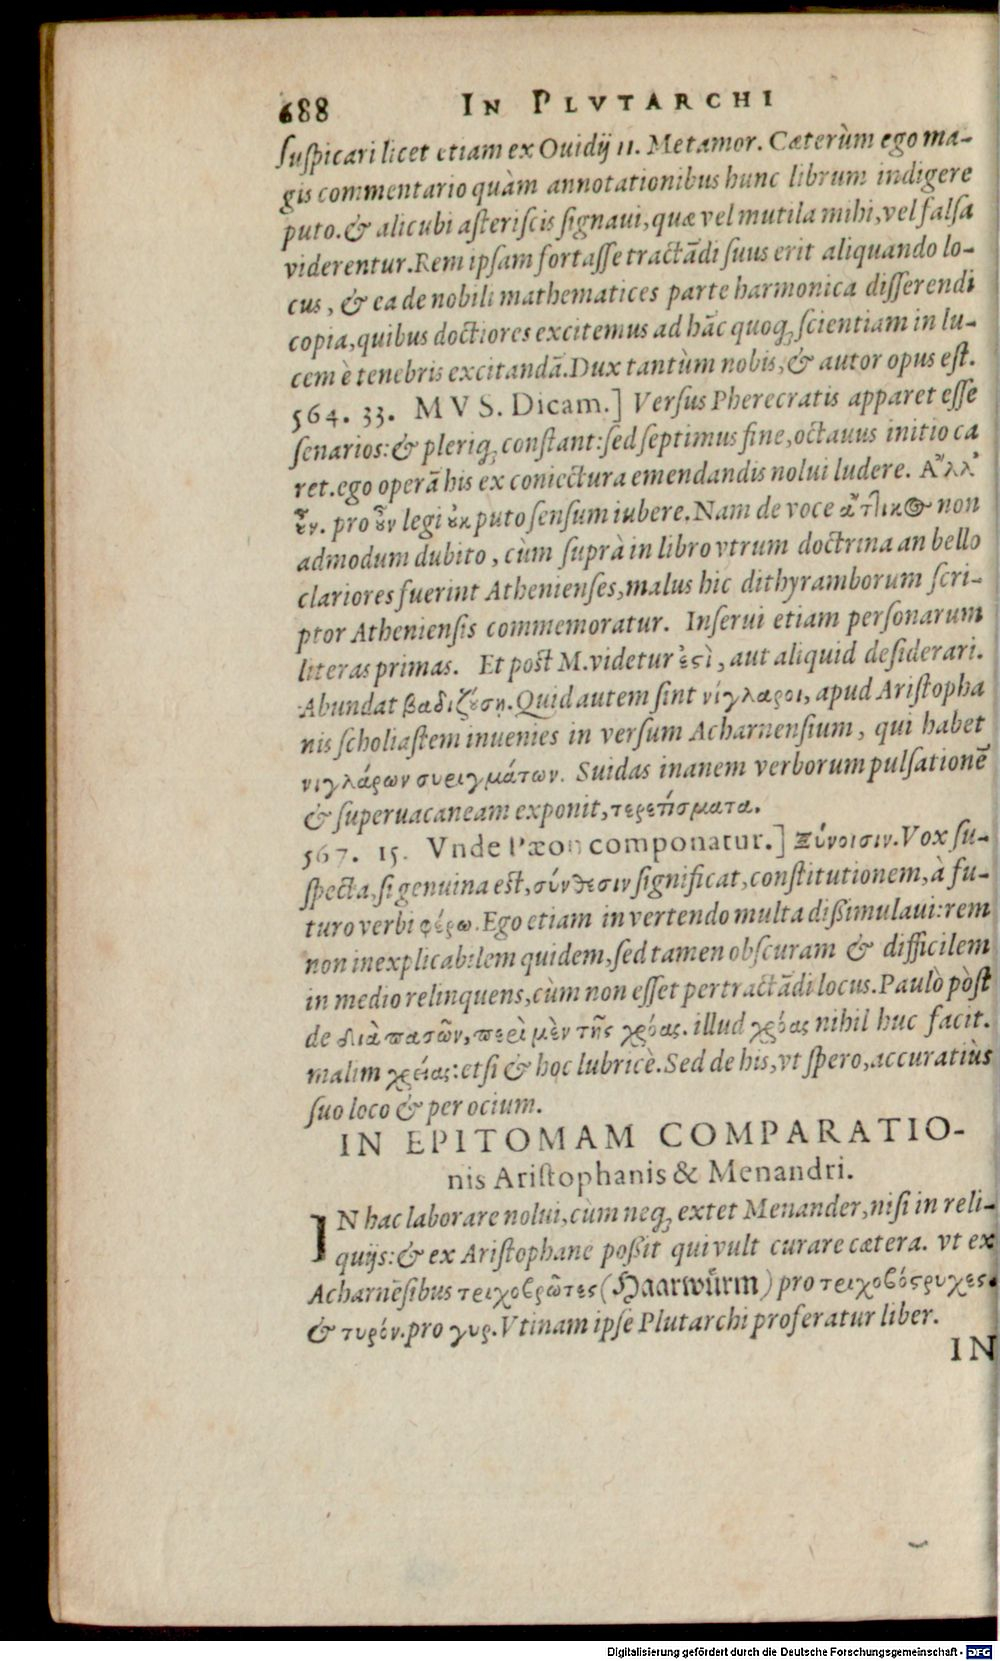 688 IN PLVTARCHI
ſuſpicari licet etiam ex Ouidij 11. Metamor. Cæterùm ego ma-
gis commentario quàm annotationibus hunc librum indigere
puto. & alicubi aſteriſcis ſignaui, quæ vel mutila mihi, vel falſa
viderentur. Rem ipſam fortaſſe tractãdi ſuus erit aliquando lo-
cus, & ea de nobili mathematices parte harmonica diſſerendi
copia, quibus doctiores excitemus ad hãc quoq; ſcientiam in lu-
cem è tenebris excitandã. Dux tantùm nobis, & autor opus eſt.
564. 33. MVS. Dicam.] Verſus Pherecratis apparet eſſe
ſenarios: & pleriq; conſtant: ſed ſeptimus fine, octauus initio ca
ret. ego operã his ex coniectura emendandis nolui ludere. Ἀλλ'
οὖν. pro οὖν legi οὐκ puto ſenſum iubere. Nam de voce ἄτλικος non
admodum dubito, cùm ſuprà in libro vtrum doctrina an bello
clariores fuerint Athenienſes, malus hic dithyramborum ſcri-
ptor Athenienſis commemoratur. Inſerui etiam perſonarum
literas primas. Et poſt M. videtur ἐςὶ, aut aliquid deſiderari.
Abundat βαδιζούσῃ. Quid autem ſint νίγλαροι, apud Ariſtopha
nis ſcholiaſtem inuenies in verſum Acharnenſium, qui habet
νιγλάρων συριγμάτων. Suidas inanem verborum pulſationẽ
& ſuperuacaneam exponit, τερετίσματα.
567. 15. Vnde Pæon componatur.] Ξύνοισιν. Vox ſu-
ſpecta, ſi genuina eſt, σύνθεσιν ſignificat, conſtitutionem, à fu-
turo verbi φέρω. Ego etiam in vertendo multa dißimulaui: rem
non inexplicabilem quidem, ſed tamen obſcuram & difficilem
in medio relinquens, cùm non eſſet pertractãdi locus. Paulò pòſt
de διὰ πασῶν, περὶ μὲν τῆς χρόας. illud χρόας nihil huc facit.
malim χρείας: etſi & hoc lubricè. Sed de his, vt ſpero, accuratiùs
ſuo loco & per ocium.
IN EPITOMAM COMPARATIO-
nis Ariſtophanis & Menandri.
IN hac laborare nolui, cùm neq; extet Menander, niſi in reli-
quijs: & ex Ariſtophane poßit qui vult curare cætera. vt ex
Acharnẽſibus τριχοβρῶτες (Haarwuͤrm) pro τριχοβόςρυχες.
& τυρόν. pro γυρ. Vtinam ipſe Plutarchi proferatur liber.
IN
Digitalisierung gefördert durch die Deutsche Forschungsgemeinschaft - DFG